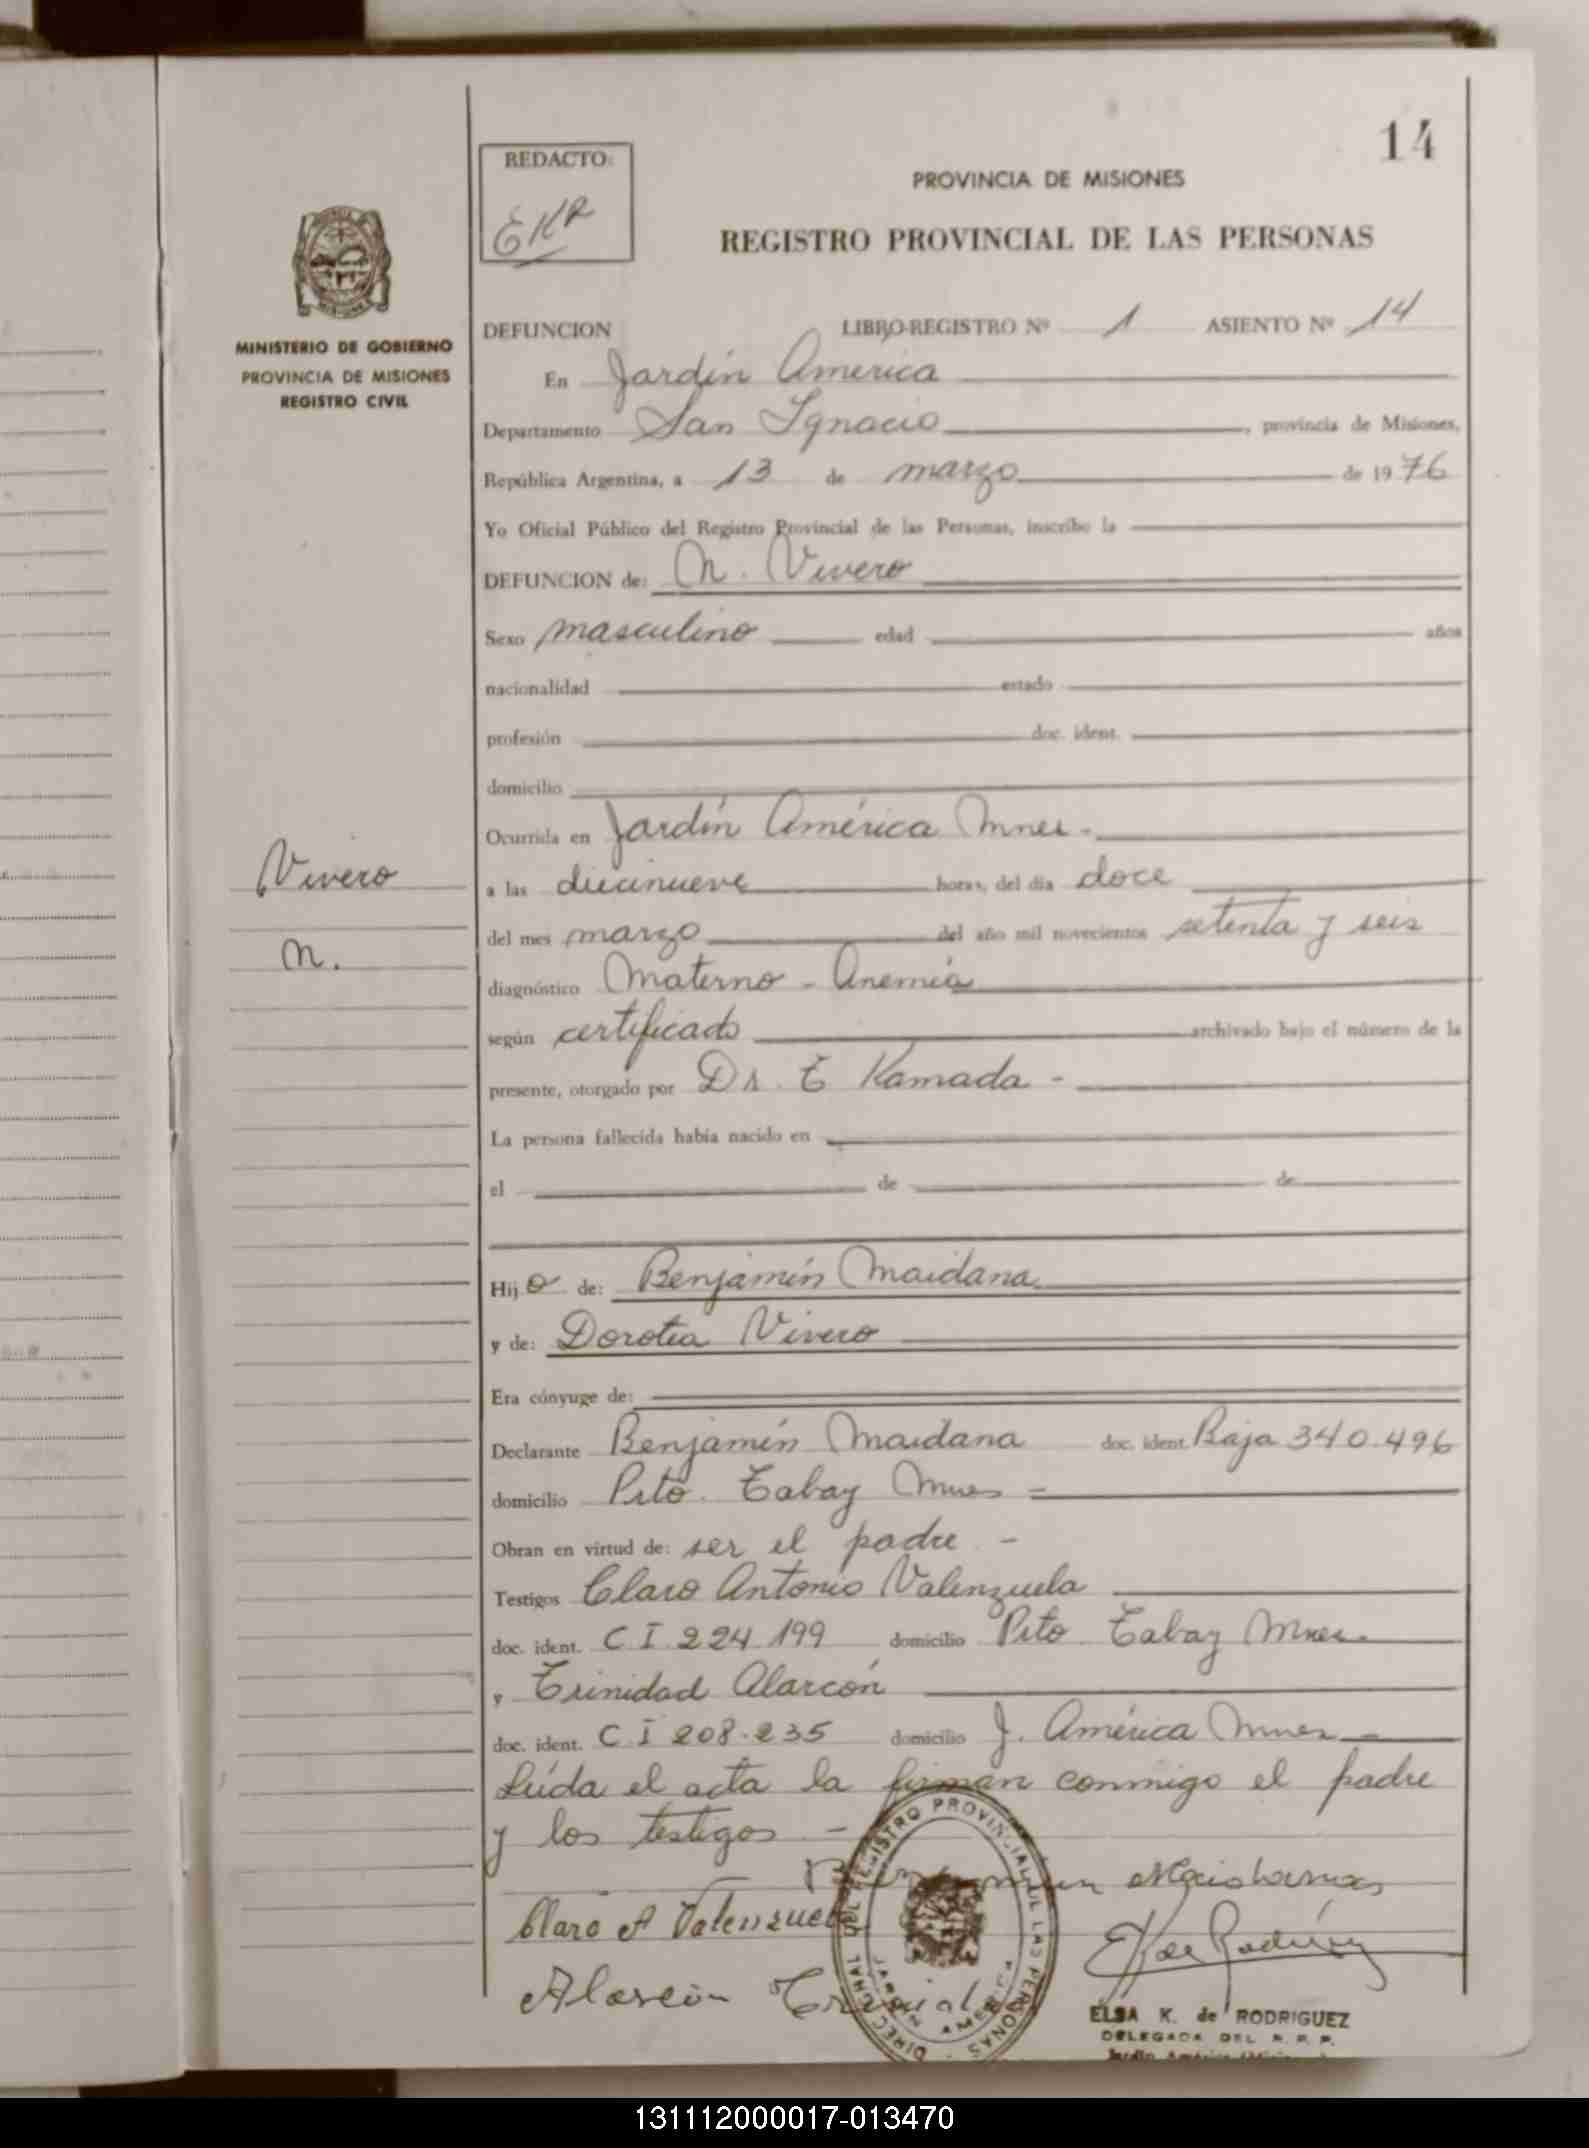 14
REDACTO:
EKR
PROVINCIA DE MISIONES
REGISTRO PROVINCIAL DE LAS PERSONAS
MISIONES
MINISTERIO DE GOBIERNO
PROVINCIA DE MISIONES
REGISTRO CIVIL
DEFUNCION LIBRO-REGISTRO Nº 1 ASIENTO Nº 14
En Jardín America
Departamento San Ignacio, provincia de Misiones,
República Argentina, a 13 de marzo de 1976
Yo Oficial Público del Registro Provincial de las Personas, inscribo la
DEFUNCION de: N. Vivero
Sexo masculino edad años
nacionalidad estado
profesión doc. ident.
domicilio
Ocurrida en Jardín América Mnes.
Vivero
a las diecinueve horas, del día doce
N.
del mes marzo del año mil novecientos setenta y seis
diagnóstico Materno - Anemia
según certificado archivado bajo el número de la
presente, otorgado por Dr. E Kamada -
La persona fallecida había nacido en
el de de
Hijo de: Benjamín Maidana
y de: Dorotea Vivero
Era cónyuge de:
Declarante Benjamín Maidana doc. ident. Baja 340.496
domicilio Pito. Tabay Mnes -
Obran en virtud de: ser el padre. -
Testigos Claro Antonio Valenzuela
doc. ident. C I 224.199 domicilio Pito. Tabay Mnes.
y Trinidad Alarcón
doc. ident. C I 208.235 domicilio J. América Mnes -
Leída el acta la firman conmigo el padre
y los testigos -
Benjamin Maidana
Claro A Valenzuela
EK de Rodríguez
Alarcón Trinidad
DIRECCION GRAL DEL REGISTRO PROVINCIAL DE LAS PERSONAS
JARDIN AMERICA
ELSA K. de RODRIGUEZ
DELEGADA DEL R. P. P.
Jardín América (Misiones)
131112000017-013470